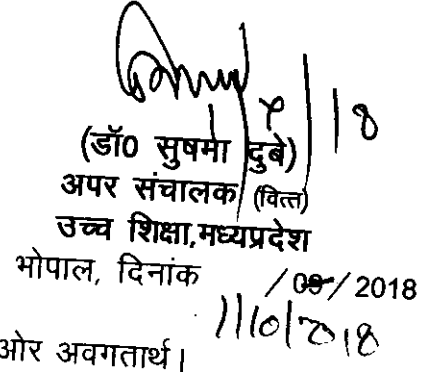 (डॉ0 सुषमा दुबे)
अपर संचालक (वित्त)
उच्च शिक्षा,मध्यप्रदेश
भोपाल, दिनांक /09/ 2018
1/10/2018
ओर अवगतार्थ।